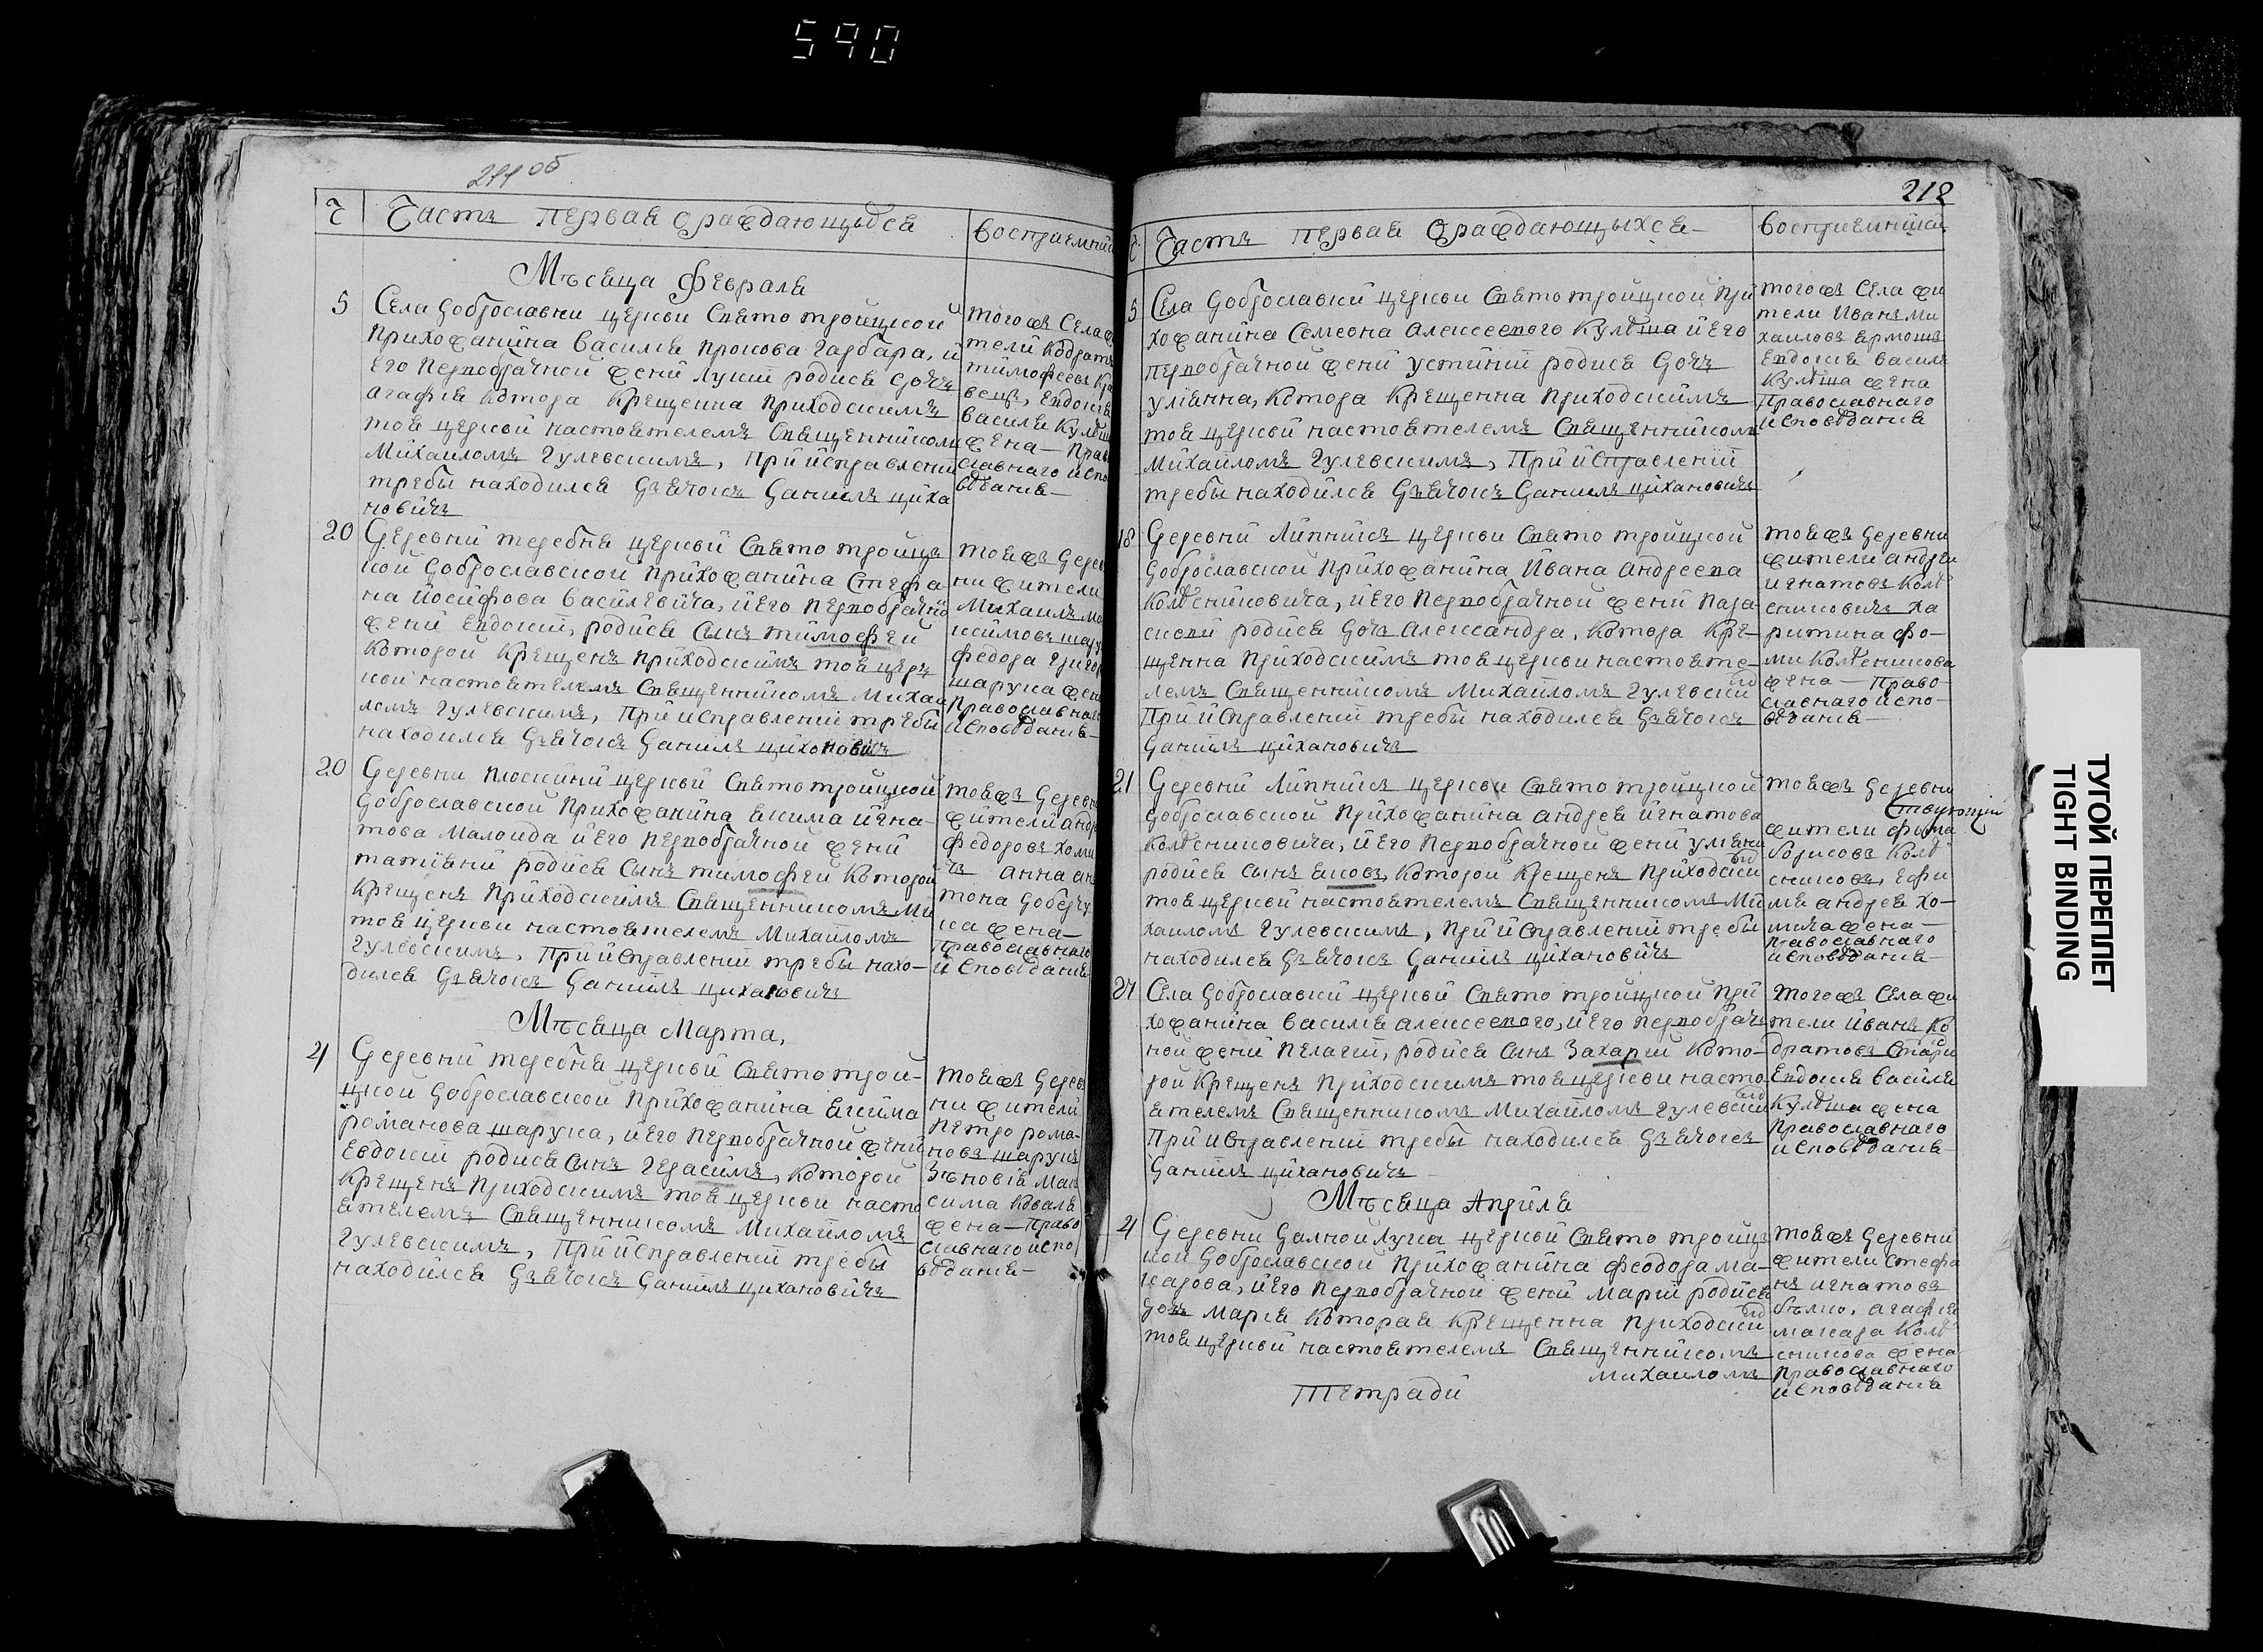 590
211 об
Ч
Часть первая ораждающыхся
Восприемни
Месяца Февраля
5
Села Доброславки церкви Свято тройцкой
Прихожанина василiя прокова Гарбара, и
Его первобрачной жени Лукiи родися Дочь
Агафiя котора Крещенна Приходскимъ
тоя церкви настоятелемъ Священникомъ
Михаиломъ Гулевскимъ, При исправленiи
требы находился Дьячокъ Данiилъ циха
новичъ
тогожъ Села ж
тели Кодратъ
тимофеевъ
вецъ, Евдокiя
Василя Кулѣш
жена — Прав
славнаго испо
вѣданiя —
20
Деревни теребня церкви Свято тройцъ
кой Доброславской Прихожанина Стефа
на Иосифова Василевича, и Его первобрачной
жени Евдокiи, родися Сынъ тимофей
которой Крещенъ Приходскимъ тоя церк
кви настоятелемъ Священникомъ Михаи
ломъ Гулевскимъ, При исправленiи требы
находился Дьячокъ Данiилъ цихоновичъ
тояжъ Дерев
ни жители
Михаилъ ма
ксимовъ шару
федора Григор
шарука жен
Православнаго
исповѣданiя —
20
Деревни плоскини церкви Свято тройцкой
Доброславской Прихожанина якима игна-
това малоида и Его первобрачной жени
татiяни родися Сынъ тимофеи которой
Крещенъ Приходскимъ Священникомъ Ми
тоя церкви настоятелемъ Михаиломъ
Гулевскимъ, При исправленiи требы нахо-
дился Дьячокъ Данiилъ цихановичъ
тояжъ Деревн
жители андр
федоровъ хоми
чъ анна ан
тона Доберчу
ка жена —
Православнаго
исповѣданiя
Месяца Марта,
4
Деревни теребня церкви Свято трой-
цкой Доброславской Прихожанина якима
романова шарука, и Его первобрачной жени
Евдокiи родися Сынъ Герасимъ, которой
Крещенъ Приходскимъ тоя церкви насто
ятелемъ Священникомъ Михаиломъ
Гулевскимъ, При исправленiи требы
находился Дьячокъ Данiилъ цихановичъ
тояжъ Дерев
ни жители
петро рома-
новъ шарукъ
Зѣновiя Мак
сима Коваля
жена — Право
славнаго испо
вѣданiя —
212
Часть первая Ораждающыхся —
Восприемники
5
Села Доброславки церкви Свято тройцкой При
хожанина Семеона Алексеевого Кулѣша и Его
первобрачной жени устинiи родися Дочь
улiянна, котора Крещенна Приходскимъ
тоя церкви настоятелемъ Священникомъ
Михаиломъ Гулевскимъ, При исправленiи
требы находился Дьячокъ Данiилъ цихановичъ
тогожъ Села жи
тели Иванъ Ми
хаиловъ ярмошъ
Евдокiя василя
Кулѣша жена
Православнаго
исповѣданiя
18
Деревни Липникъ церкви Свято тройцкой
Доброславской Прихожанина Ивана Андреева
Колѣсниковича, и Его первобрачной жени пара
скеви родися Дочь Александра, котора Кре-
щенна Приходскимъ тоя церкви настояте-
лемъ Священникомъ Михаиломъ Гулевски
При исправленiи требы находился Дьячокъ
Данiилъ цихановичъ
тояжъ Деревни
жители андрей
игнатовъ Колѣ
сниковичъ Ха
ритина фо-
ми Колѣсникова
жена — Право-
славнаго испо-
вѣданiя —
21
Деревни Липникъ церкви Свято тройцкой
Доброславской Прихожанина андрея игнатова
Колѣсниковича, и Его первобрачной жени улiяни
родися Сынъ яковъ, которои Крещенъ Приходски
тоя церкви настоятелемъ Священникомъ Ми
хаиломъ Гулевскимъ, При исправленiи требы
находился Дьячокъ Данiилъ цихановичъ
тояжъ Деревни
Ствующiй
жители фома
борисовъ Колѣ
сниковъ, Ефи
мiя андрея Хо-
мича жена —
Православнаго
исповѣданiя —
27
Села Доброславки церкви Свято тройцкой При
хожанина Василiя Алексеевого, и Его первобрач
ной жени Пелагiи, родися Сынъ Захарiи кото-
рой Крещенъ Приходскимъ тоя церкви насто
ятелемъ Священникомъ Михаиломъ Гулевски
При исправленiи требы находился Дьячокъ
Данiилъ цихановичъ
тогожъ Села жи
тели Иванъ Ко
дратовъ
Евдокiя Василя
Кулѣша жена
Православнаго
исповѣданiя —
Месяца Апрѣля
4
Деревни Далной Лука церкви Свято тройцъ
кой Доброславской Прихожанина Феодора ма-
карова, и Его первобрачной жени Марiи родися
Дочь Марiя которая Крещенна Приходски
тоя церкви настоятелемъ Священникомъ
Михаиломъ
тояжъ Деревни
жители Стефа
нъ игнатовъ
агафiя
макара Колѣ
сникова жена
Православнаго
исповѣданiя
Тетради
ТУГОЙ ПЕРЕПЛЕТ
TIGHT BINDING